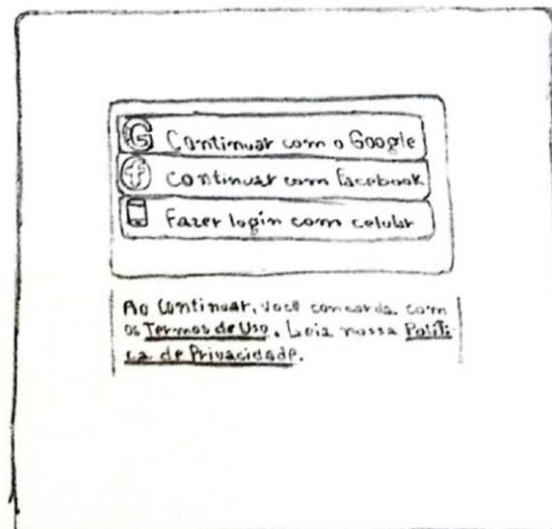 G Continuar com o Google
f continuar com Facebook
Fazer login com celular
Ao Continuar, você concorda com
os Termos de Uso. Leia nossa Políti-
ca de Privacidade.